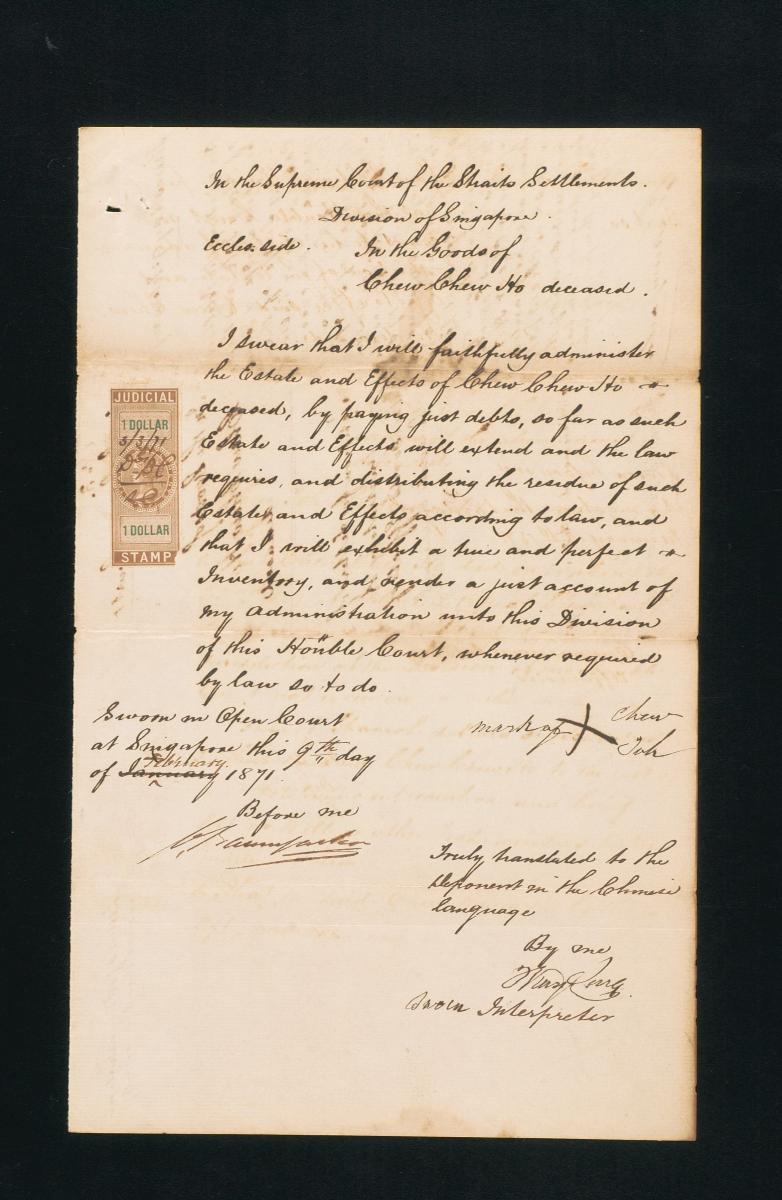 In the Supreme Court of the Straits Settlements.
Division of Singapore.
Eccles. side. In the Goods of
Chew Chew Ho deceased.
I swear that I will faithfully administer
the Estate and Effects of Chew Chew Ho
deceased, by paying just debts, so far as such
Estate and Effects will extend and the law
requires, and distributing the residue of such
Estate and Effects according to law, and
that I will exhibit a true and perfect
Inventory, and render a just account of
my administration unto this Division
of this Honble Court, whenever required
by law so to do.
JUDICIAL
1 DOLLAR
1 DOLLAR
STAMP
Sworn in Open Court
at Singapore this 9th day
February
of January 1871.
mark of X Chew
Toh
Before me
Truly translated to the
Deponent in the Chinese
language
By me
Sworn Interpreter